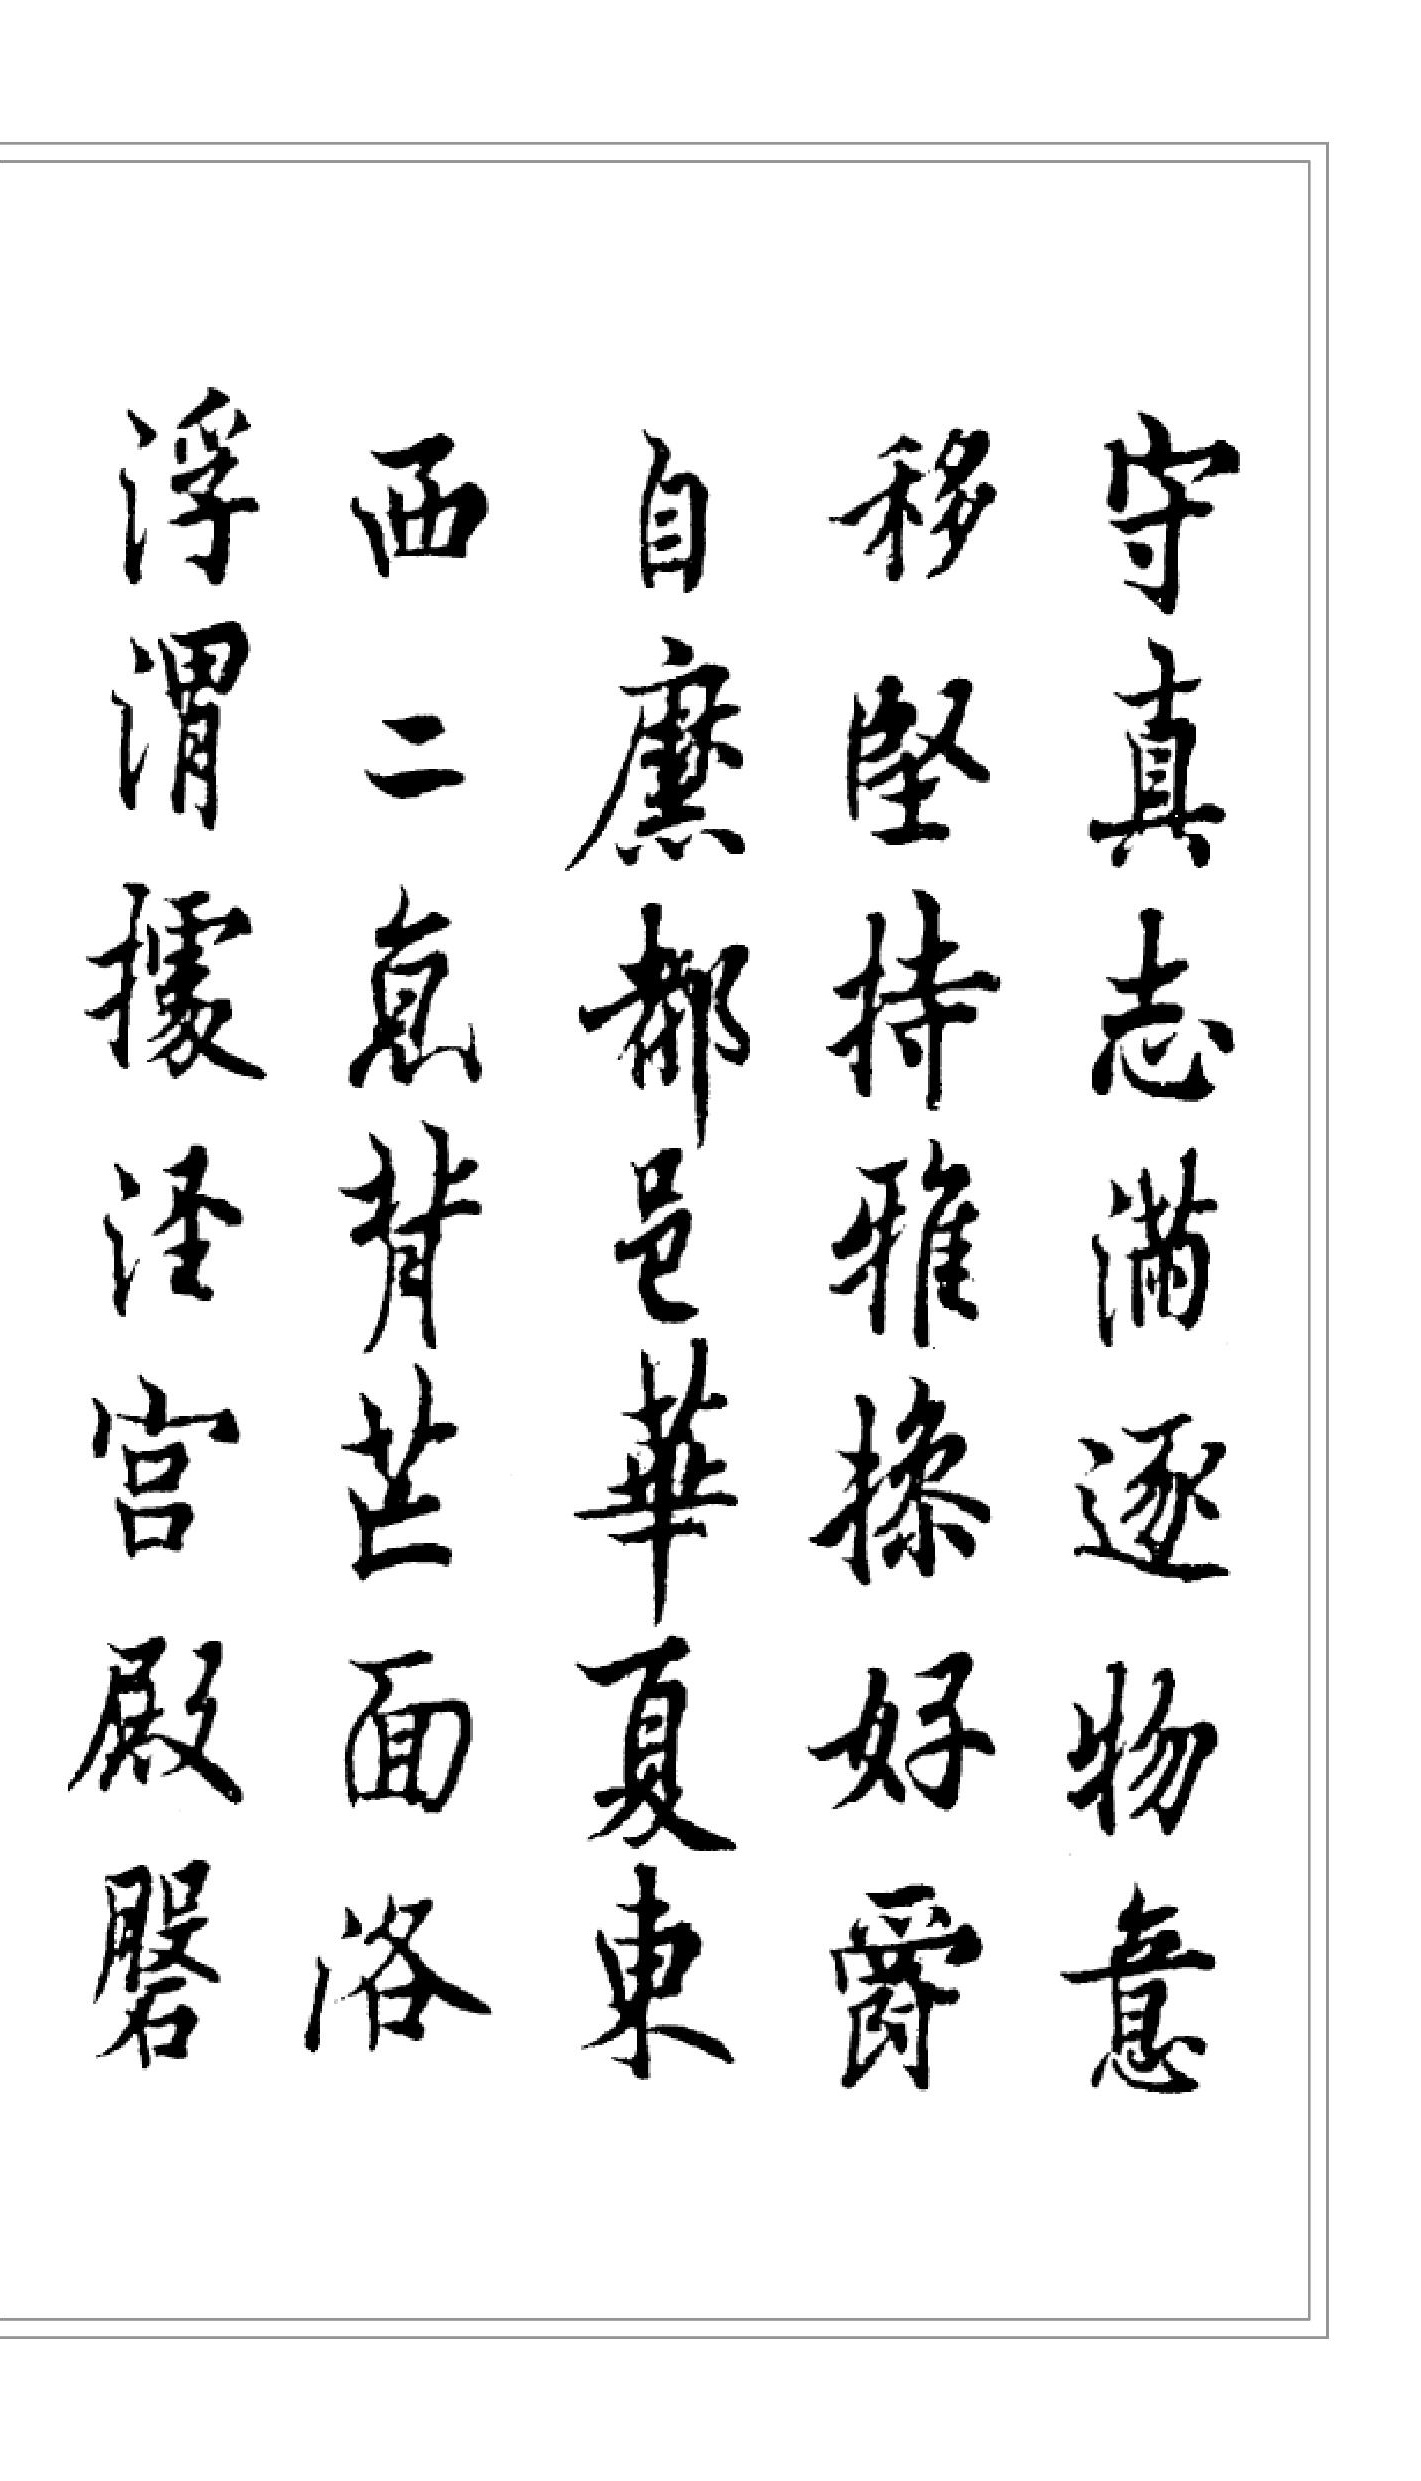 守真志滿逐物意
移堅持雅操好爵
自縻都邑華夏東
西二京背芒面洛
浮渭據涇宮殿磐